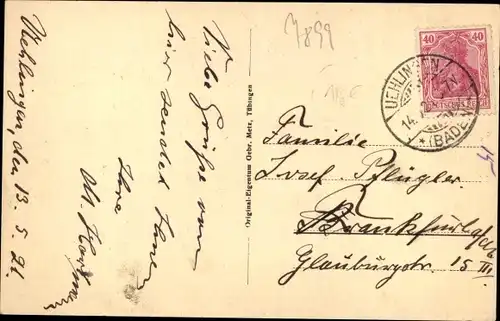 Uehlingen, den 13. 5. 21.
Viele Grüße von
hier sendet Ihnen
Ihre
Original-Eigentum Gebr. Metz, Tübingen
7899
40 40
DEUTSCHES
UEHLINGEN
14.
* (BADEN)
Familie
Josef Pflügler
Frankfurt a/M
Glauburgstr. 15 III